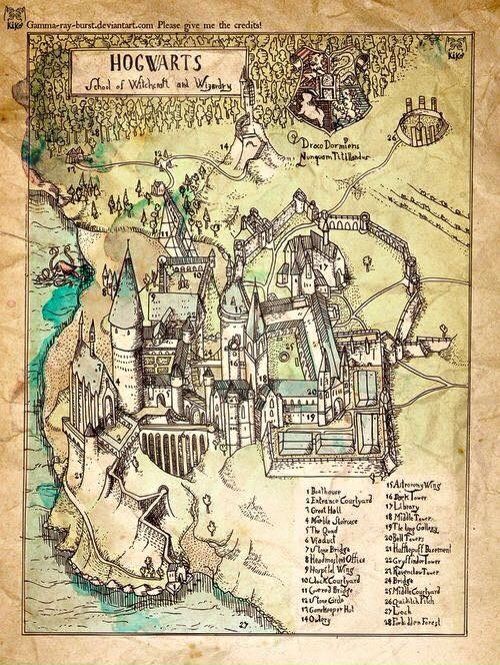 Gamma-ray-burst.deviantart.com Please give me the credits!
KiKo
KiKo
HOGWARTS
School of Witchcraft and Wizardry
Draco Dormiens
Nunquam Titillandus
1 Boathouse
2 Entrance Courtyard
3 Great Hall
4 Marble Staircase
5 The Quad
6 Viaduct
7 Stone Bridge
8 Headmasters Office
9 Hospital Wing
10 Clock Courtyard
11 Covered Bridge
12 Stone Circle
13 Gamekeeper Hut
14 Owlery
15 Astronomy Wing
16 Dark Tower
17 Library
18 Middle Tower
19 The long Gallery
20 Bell Towers
21 Hufflepuff Basement
22 Gryffindor Tower
23 Ravenclaw Tower
24 Bridge
25 Middle Courtyard
26 Quidditch Pitch
27 Loch
28 Forbidden Forest
14
26
27